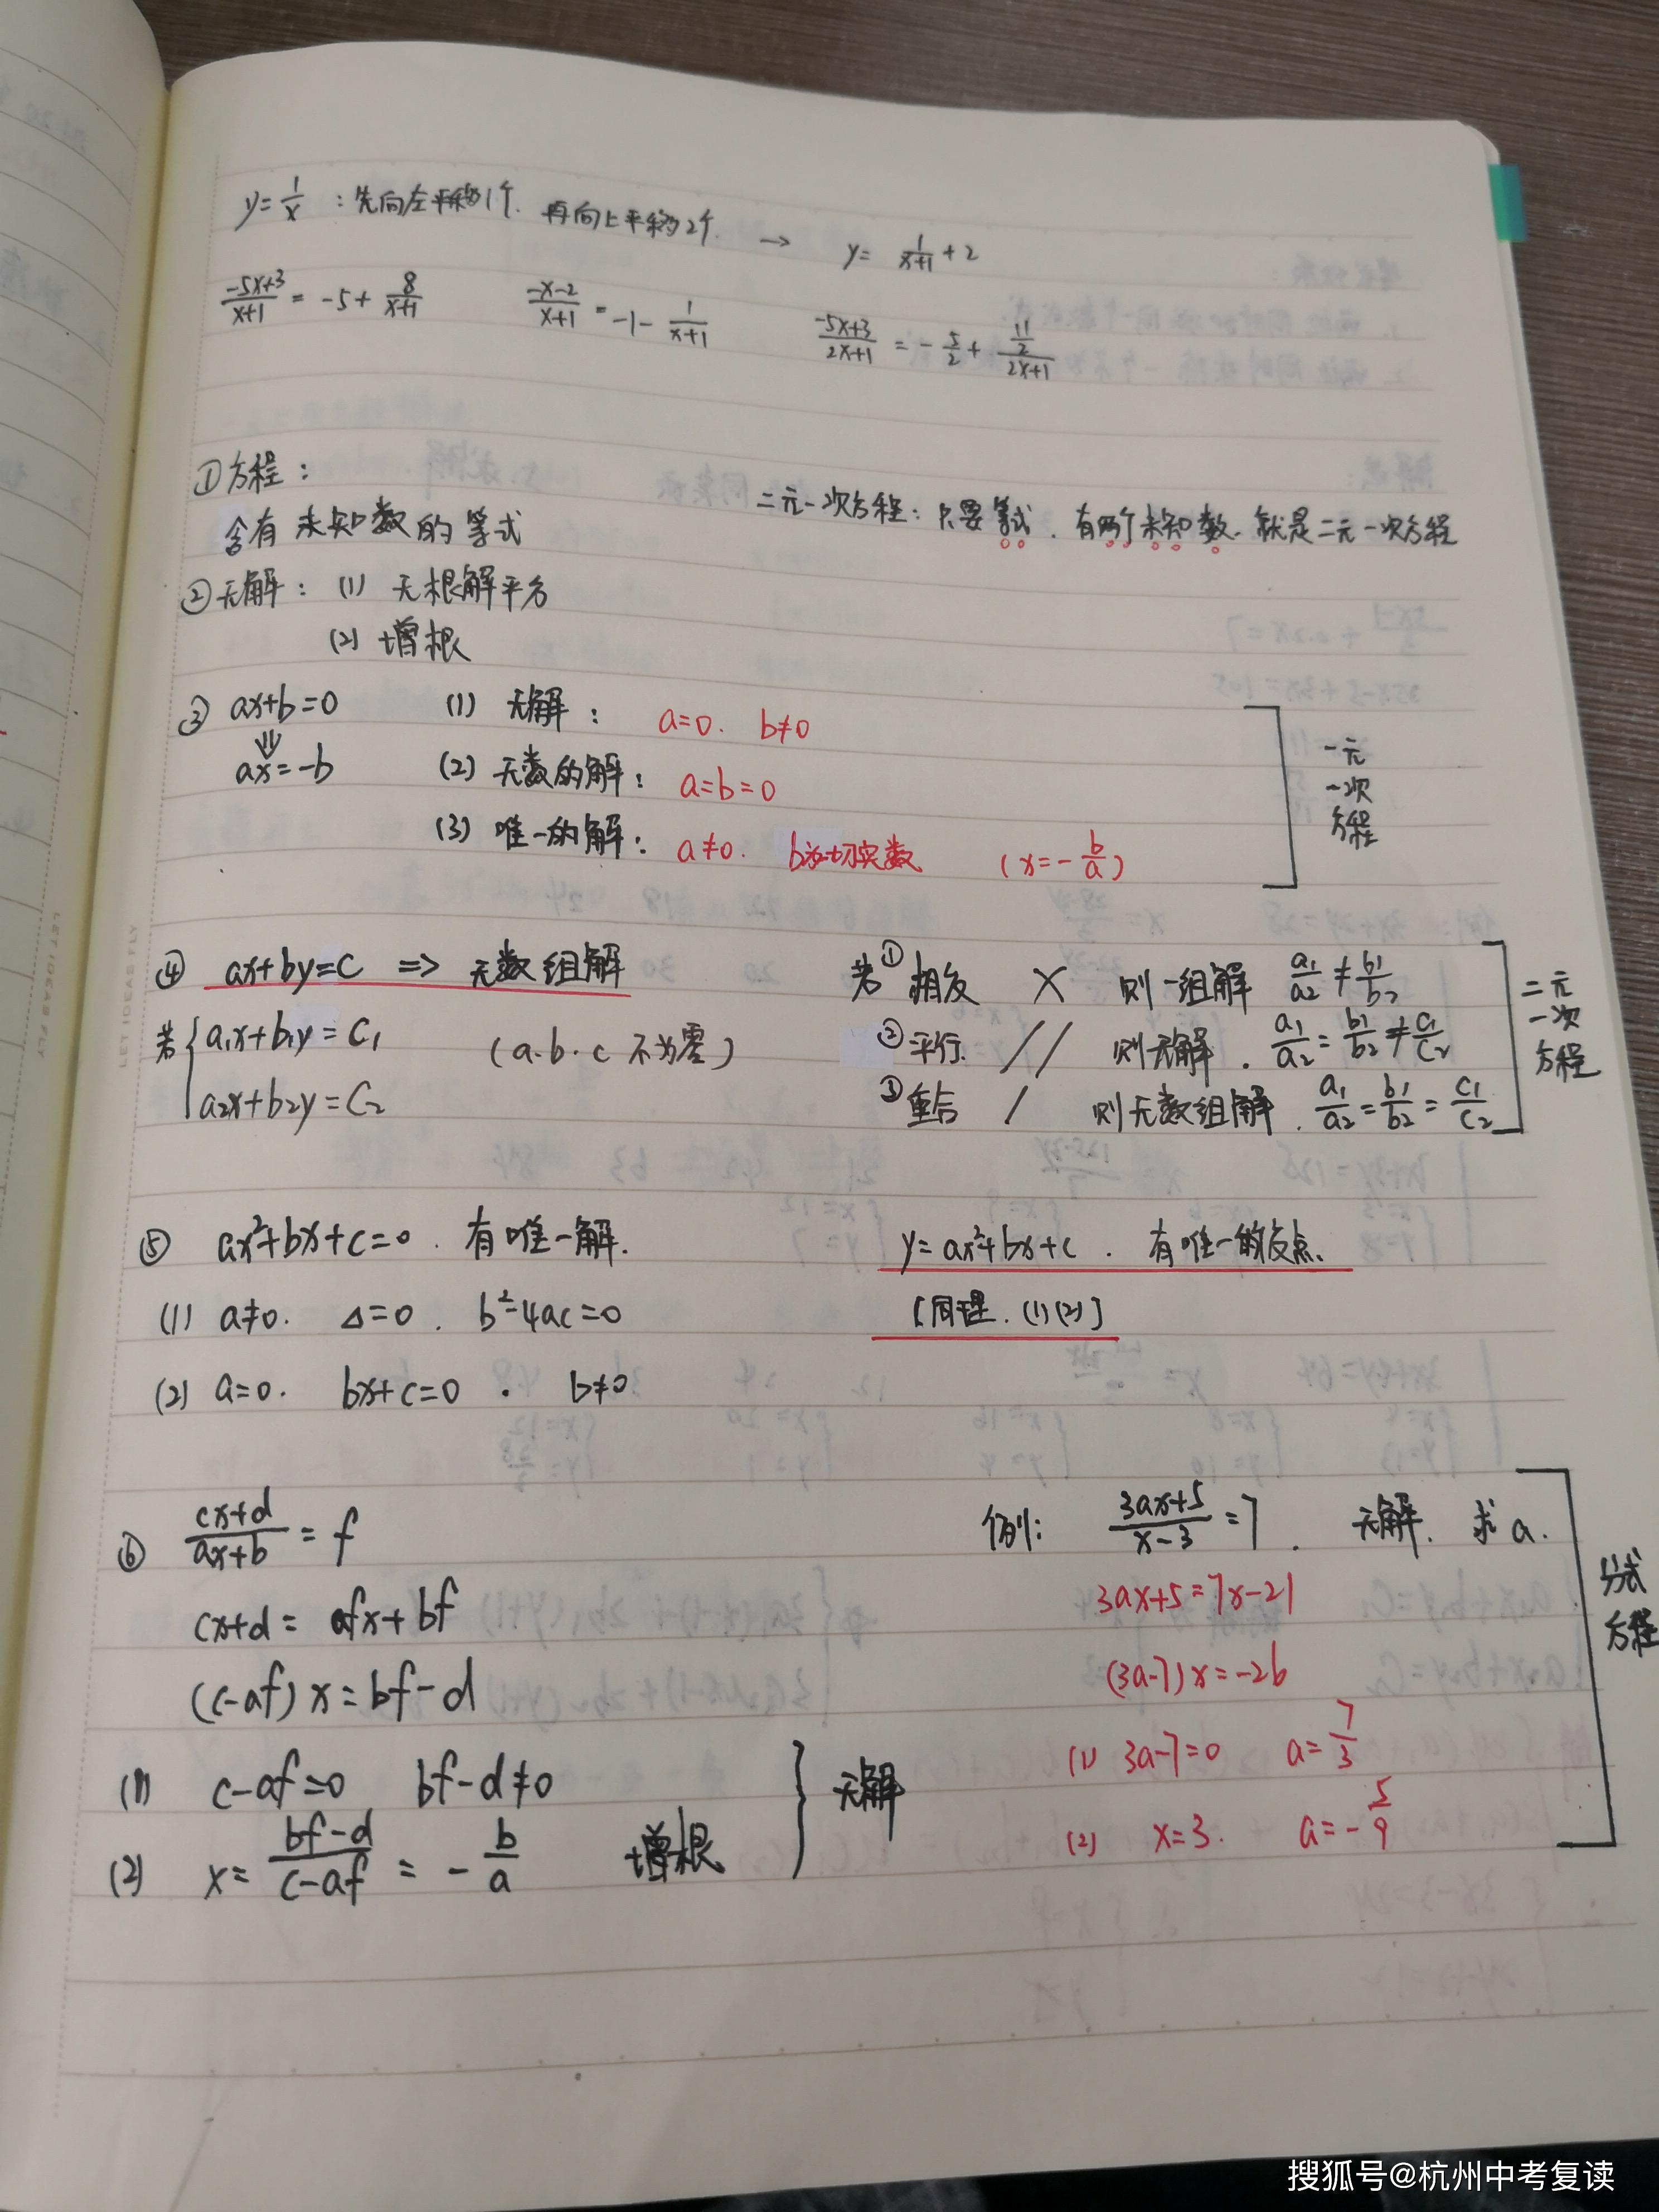 y=1/x : 先向左平移1个. 再向上平移2个. → y= 1/(x+1) +2
(-5x+3)/(x+1) = -5+ 8/(x+1)   (-x-2)/(x+1) = -1- 1/(x+1)   (-5x+3)/(2x+1) = -5/2 + (11/2)/(2x+1)
①方程:
含有未知数的等式
二元一次方程: 只要等式. 有两个未知数. 就是二元一次方程
②无解: (1) 无根解平方
(2) 增根
③ ax+b=0 (1) 无解: a=0. b≠0
⇓
ax=-b (2) 无数的解: a=b=0
(3) 唯一的解: a≠0. 切实数 (x=-b/a)
一元
一次
方程
④ ax+by=c => 无数组解
若 { a₁x+b₁y=C₁
a₂x+b₂y=C₂
(a.b.c 不为零)
若① 相交 X 则一组解 a₁/a₂≠b₁/b₂
②平行. // 则无解. a₁/a₂=b₁/b₂≠c₁/c₂
③重合 / 则无数组解. a₁/a₂=b₁/b₂=c₁/c₂
二元
一次
方程
⑤ ax²+bx+c=0. 有唯一解.
(1) a≠0. Δ=0. b²-4ac=0
(2) a=0. bx+c=0. b≠0
y=ax²+bx+c. 有唯一的交点.
[同理. (1)(2)]
⑥ (cx+d)/(ax+b) = f
cx+d= afx+bf
(c-af)x=bf-d
(1) c-af=0 bf-d≠0
(2) x= (bf-d)/(c-af) = -b/a 增根
} 无解
例: (3ax+5)/(x-3)=7. 无解. 求a.
3ax+5=7x-21
(3a-7)x=-26
(1) 3a-7=0 a=7/3
(2) x=3. a=-5/9
分式
方程
LET IDEAS FLY
搜狐号@杭州中考复读